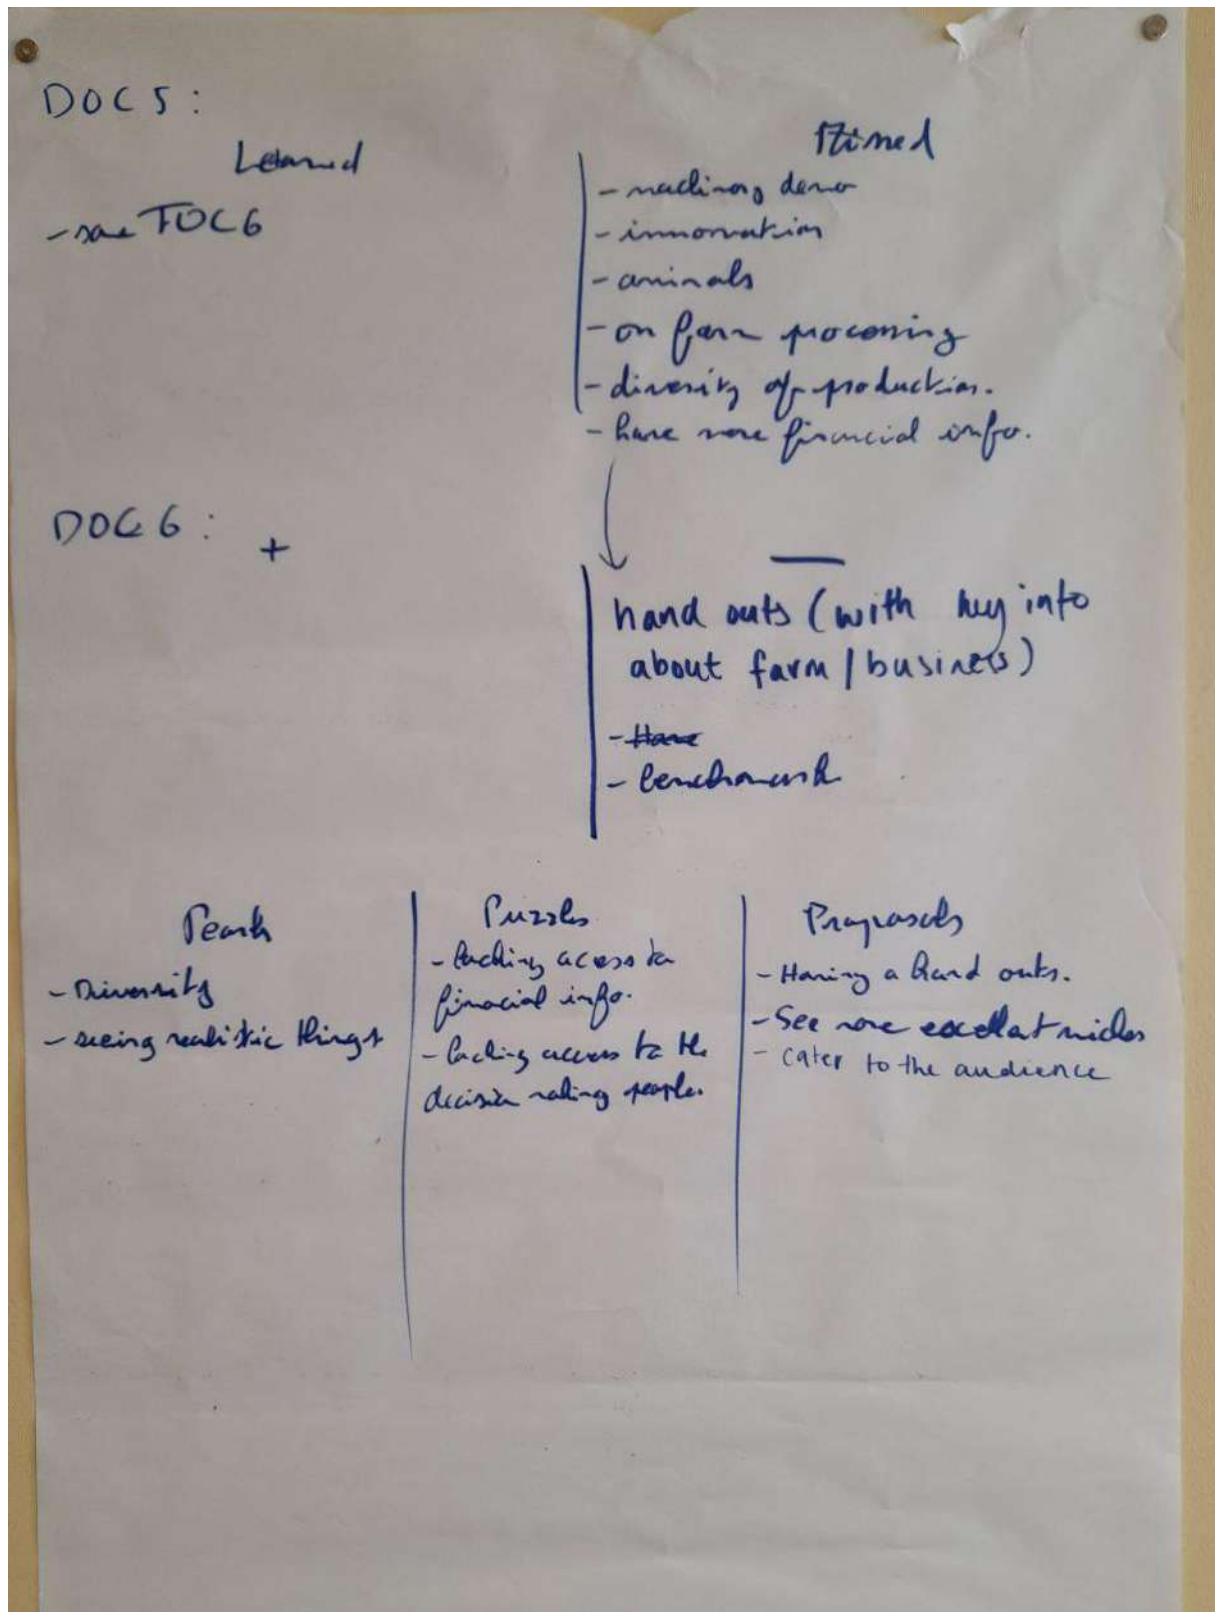 DOC 5:
Learned
- same TOC6
Missed
- machinery demo
- innovation
- animals
- on farm processing
- diversity of production.
- have more financial info.
DOC 6:
+
—
hand outs (with key info
about farm / business)
- Have
- benchmark
Pearls
- Diversity
- seeing realistic things
Puzzles
- lacking access to
finacial info.
- lacking access to the
decision making people.
Proposals
- Having a hand outs.
- See more excellent niches
- cater to the audience